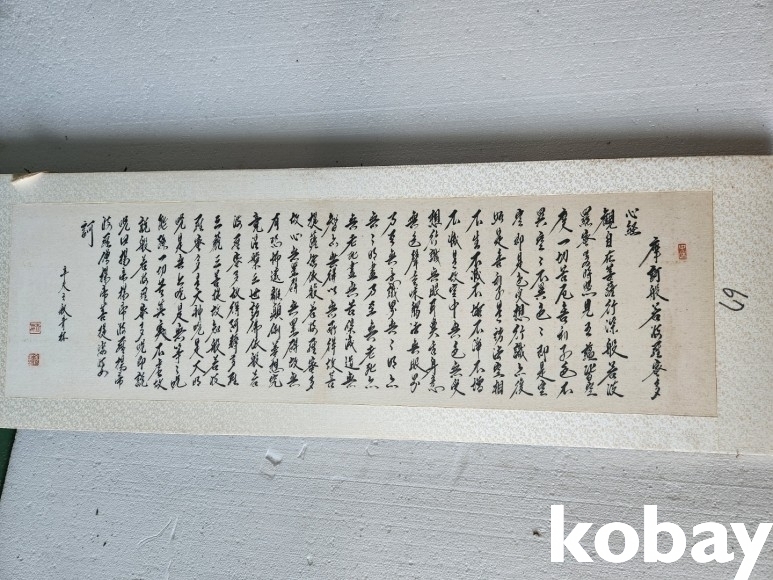 摩訶般若波羅蜜多
心經
觀自在菩薩行深般若波
羅蜜多時照見五蘊皆空
度一切苦厄舍利子色不
異空〻不異色〻即是空
空即是色受想行識亦復
如是舍利子是諸法空相
不生不滅不垢不淨不增
不減是故空中無色無受
想行識無眼耳鼻舌身意
無色聲香味觸法無眼界
乃至無意識界無〻明亦
無〻明盡乃至無老死亦
無老死盡無苦集滅道無
智亦無得以無所得故菩
提薩埵依般若波羅蜜多
故心無罣礙無罣礙故無
有恐怖遠離顛倒夢想究
竟涅槃三世諸佛依般若
波羅蜜多故得阿耨多羅
三藐三菩提故知般若波
羅蜜多是大神呪是大明
呪是無上呪是無等〻呪
能除一切苦真實不虛故
說般若波羅蜜多呪即說
呪曰揭帝揭帝波羅揭帝
波羅僧揭帝菩提薩婆
訶
69
kobay